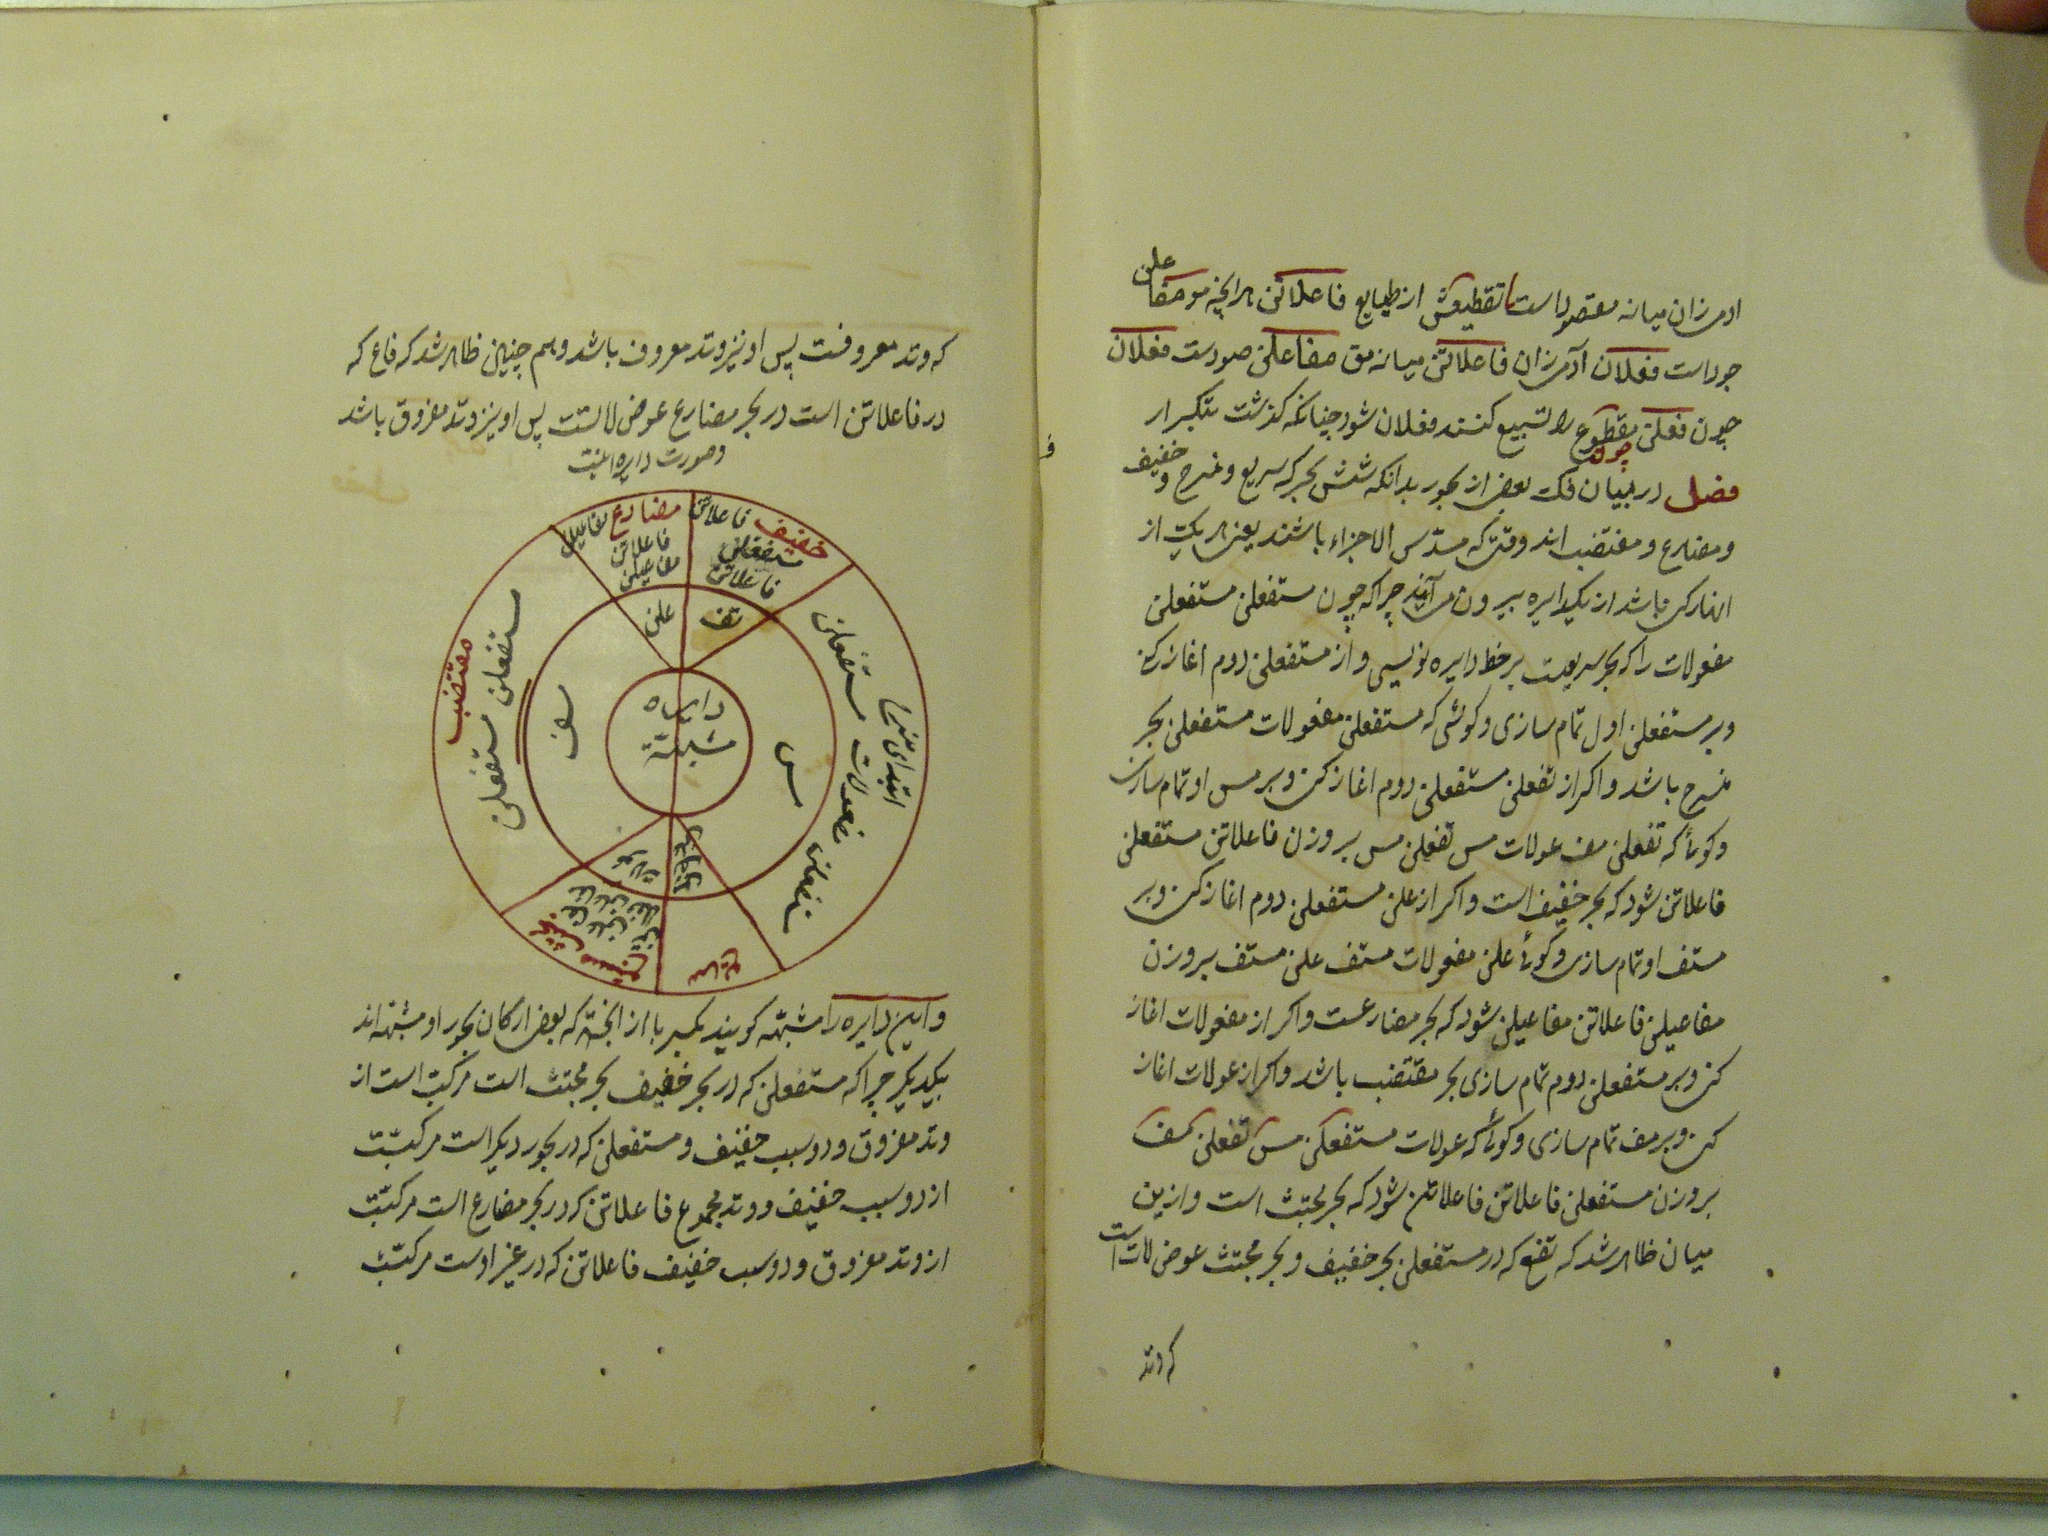 علن
ادمی زان میانه مقصود است تقطیعش از طبایع فاعلاتن هر آنچه مو مفا
جوداست فعلان آدمی زان فاعلاتن میانه مق مفاعلن صودست فعلان
چون فعلن مقطوع را تسبیع کنند فعلان شود چنانکه گذشت بتکرار
چون
فصل در بیان فک بعض از بحور بدانکه شش بحر که سریع و منسرح و خفیف
و مضارع و مقتضب اند وقتی که مسدس الاجزاء باشند یعنی هر یک از
باشد از یکدایره بیرون می آیند چرا که چون مستفعلن مستفعلن
مفعولات را که بحر سریعست بر خط دایره نویسی و از مستفعلن دوم اغاز کنی
و بر مستفعلن اول تمام سازی و کوئی که مستفعلن مفعولات مستفعلن بحر
منسرح باشد و اکر از تفعلن مستفعلن دوم اغاز کنی و بر مس او تمام سازی
و کوئی که تفعلن مف عولات مس تفعلن مس بر وزن فاعلاتن مستفعلن
فاعلاتن شود که بحر خفیف است و اکر از علن مستفعلن دوم اغاز کنی و بر
مستف او تمام سازی و کوئی علن مفعولات مستف علن مستف بر وزن
مفاعیلن فاعلاتن مفاعیلن شود که بحر مضارعست و اکر از مفعولات اغاز
کنی و بر مستفعلن دوم تمام سازی بحر مقتضب باشد و اکر از عولات اغاز
کنی و بر مف تمام سازی و کوئی که عولات مستفعلن مس تفعلن مف
بر وزن مستفعلن فاعلاتن فاعلاتن شود که بحر مجتث است و ازین
میان ظاهر شد که تفع که در مستفعلن بحر خفیف و بحر مجتث عوض لات است
که وتد
که وتد معروفست پس او نیز وتد معروف باشد و هم چنین ظاهر شد که فاع که
در فاعلاتن است در بحر مضارع عوض لاتست پس او نیز وتد مفروق باشد
و صورت دایره اینست
خفیف فاعلاتن
مستفعلن
فاعلاتن
مضارع مفاعیلن
فاعلاتن
مفاعیلن
تف
علن
مستفعلن مفعولات مستفعلن
مس
مقتضب
مستفعلن مستفعلن
مف
دایره
مشتبهة
عولات
سریع
و این دایره را مشتبهه کویند بکسر با از انجهة که بعض ارکان بحور او مشتبه اند
بیکدیکر چرا که مستفعلن که در بحر خفیف بحر مجتث است مرکبّ است از
وتد مفروق و دو سبب خفیف و مستفعلن که در بحور دیکر است مرکبّست
از دو سبب خفیف و وتد مجموع فاعلاتن که در بحر مضارع است مرکبّست
از وتد مفروق و دو سبب خفیف فاعلاتن که در غیر اوست مرکبّست